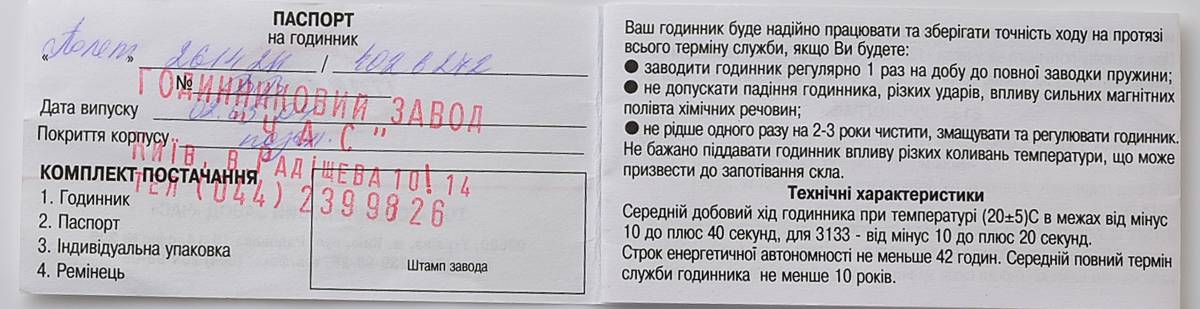 ПАСПОРТ
на годинник
"Полет" 2614 2Н / 402 6242
№
ГОДИННИКОВИЙ ЗАВОД
Дата випуску
"ЧАС"
Покриття корпусу позол.
КИЇВ, В. РАДІЩЕВА 10/14
КОМПЛЕКТ ПОСТАЧАННЯ
ТЕЛ (044) 2399826
1. Годинник
2. Паспорт
3. Індивідуальна упаковка
4. Ремінець
Штамп завода
Ваш годинник буде надійно працювати та зберігати точність ходу на протязі
всього терміну служби, якщо Ви будете:
● заводити годинник регулярно 1 раз на добу до повної заводки пружини;
● не допускати падіння годинника, різких ударів, впливу сильних магнітних
полівта хімічних речовин;
● не рідше одного разу на 2-3 роки чистити, змащувати та регулювати годинник.
Не бажано піддавати годинник впливу різких коливань температури, що може
призвести до запотівання скла.
Технічні характеристики
Середній добовий хід годинника при температурі (20±5)С в межах від мінус
10 до плюс 40 секунд, для 3133 - від мінус 10 до плюс 20 секунд.
Строк енергетичної автономності не меньше 42 годин. Середній повний термін
служби годинника не менше 10 років.